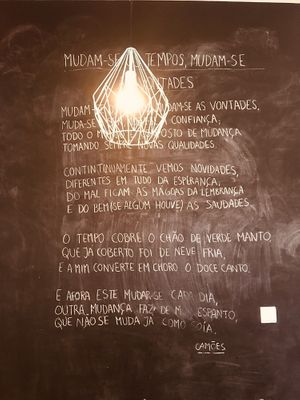 MUDAM-SE TEMPOS, MUDAM-SE
VONTADES
MUDAM- -SE AS VONTADES,
MUDA-SE CONFIANÇA;
TODO O M POSTO DE MUDANÇA
TOMANDO SEMPRE NOVAS QUALIDADES.
CONTINTINUAMENTE VEMOS NOVIDADES,
DIFERENTES EM TUDO DA ESPERANÇA,
DO MAL FICAM AS MÁGOAS DA LEMBRANÇA
E DO BEM (SE ALGUM HOUVE) AS SAUDADES.
O TEMPO COBRE O CHÃO DE VERDE MANTO,
QUE JÁ COBERTO FOI DE NEVE FRIA,
E A MIM CONVERTE EM CHORO O DOCE CANTO.
E AFORA ESTE MUDAR-SE CADA DIA,
OUTRA MUDANÇA FAZ DE M ESPANTO,
QUE NÃO SE MUDA JÁ COMO SOÍA.
CAMÕES